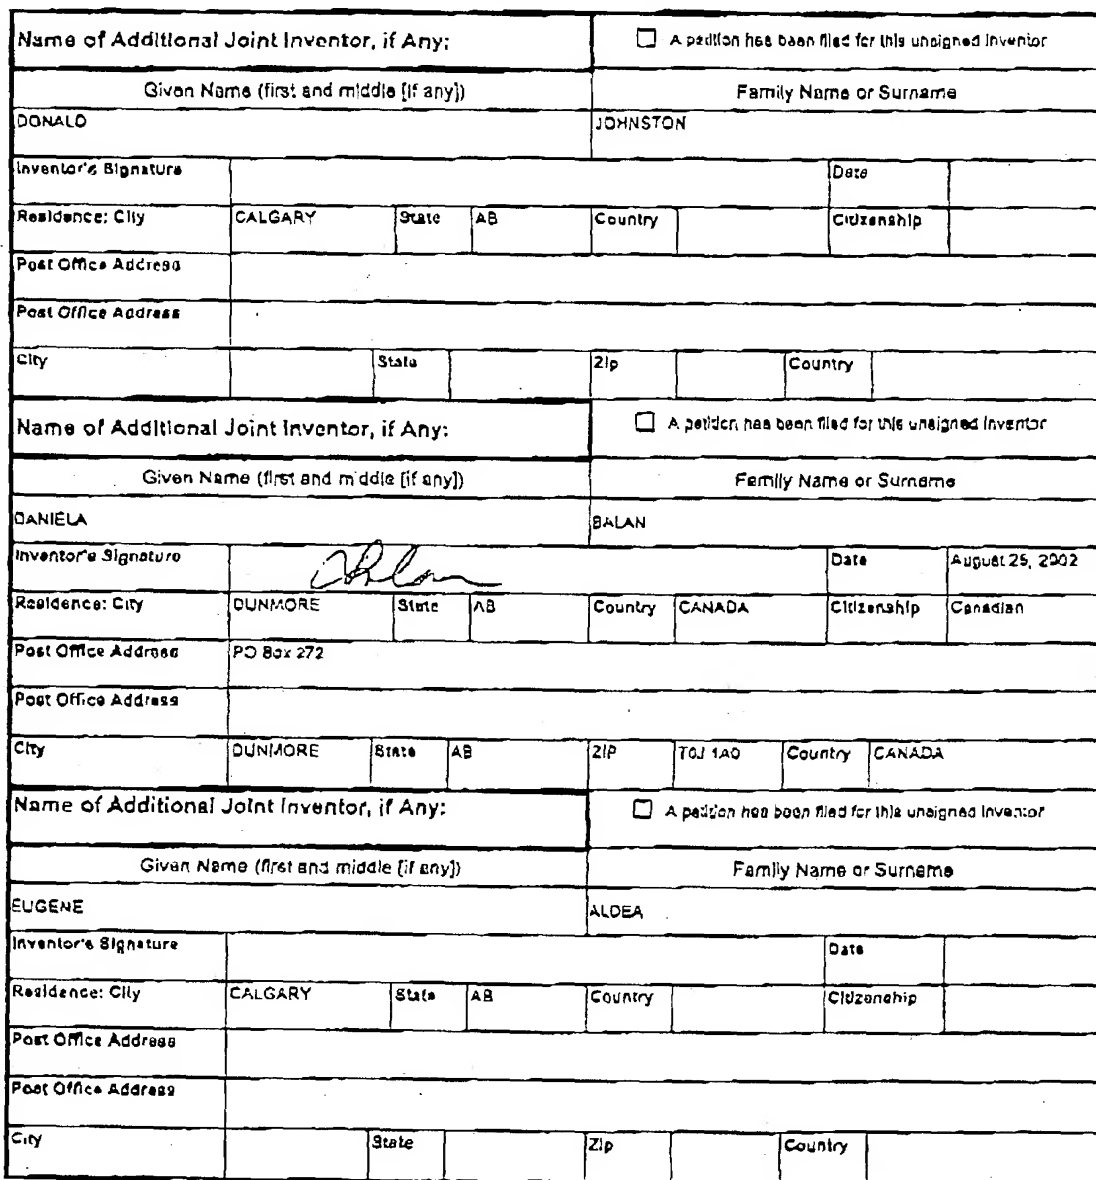 Name of Additional Joint Inventor, if Any: ☐ A petition has been filed for this unsigned inventor
Given Name (first and middle [if any]) Family Name or Surname
DONALD JOHNSTON
Inventor's Signature Date
Residence: City CALGARY State AB Country Citizenship
Post Office Address
Post Office Address
City State Zip Country
Name of Additional Joint Inventor, if Any: ☐ A petition has been filed for this unsigned inventor
Given Name (first and middle [if any]) Family Name or Surname
DANIELA BALAN
Inventor's Signature Date August 25, 2002
Residence: City DUNMORE State AB Country CANADA Citizenship Canadian
Post Office Address PO Box 272
Post Office Address
City DUNMORE State AB ZIP T0J 1A0 Country CANADA
Name of Additional Joint Inventor, if Any: ☐ A petition has been filed for this unsigned inventor
Given Name (first and middle [if any]) Family Name or Surname
EUGENE ALDEA
Inventor's Signature Date
Residence: City CALGARY State AB Country Citizenship
Post Office Address
Post Office Address
City State Zip Country